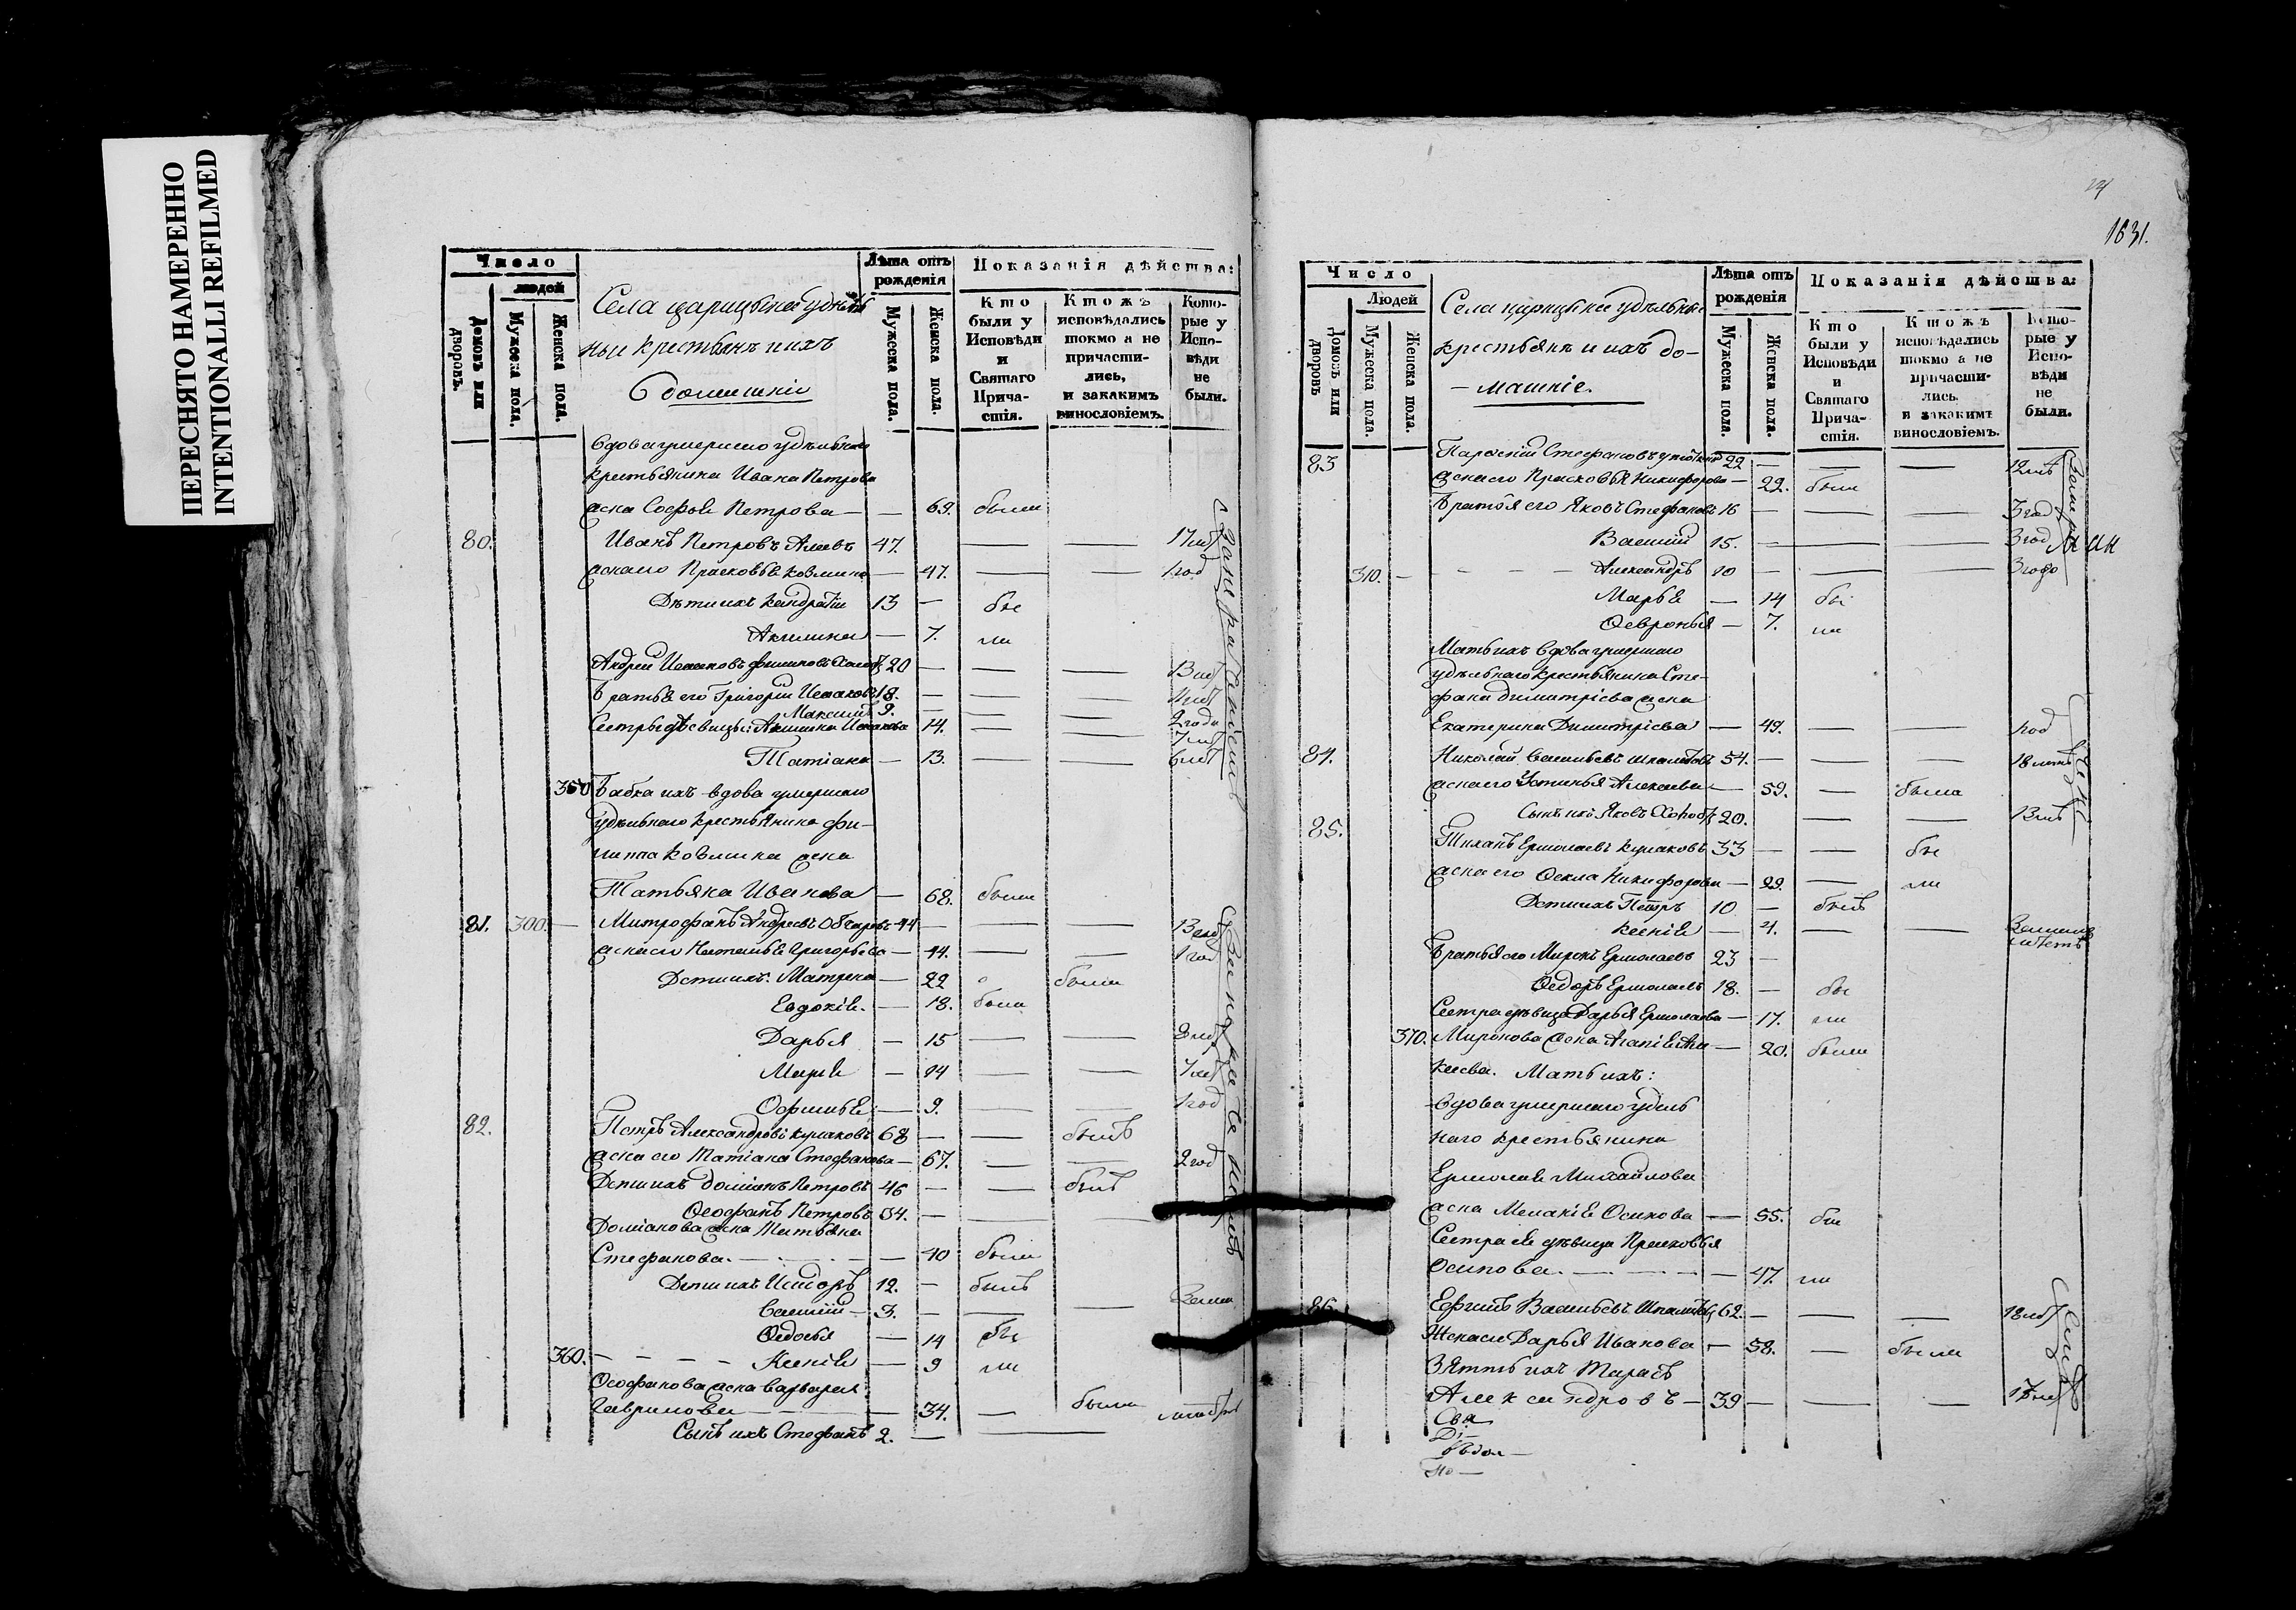 ПЕРЕСНЯТО НАМЕРЕННО
INTENTIONALLI REFILMED
Число
людей
Домовъ или дворовъ.
Мужеска пола.
Женска пола.
Села Царицына
ные крестьянъ и ихъ
домашніи
Лѣта отъ рожденія
Мужеска пола.
Женска пола.
Показанія дѣйства:
Кто были у Исповѣди и Святаго Прича-стія.
Ктожъ исповѣдались токмо а не причасти-лись, и закакимъ винословіемъ.
Кото-рые у Испо-вѣди не были.
вдова умершаго удѣльнаго
крестьянина Ивана Петрова
жена Софья Петрова — — 69. была
80. Иванъ Петровъ 47. — — 17 лѣт
жена его Прасковья Козмина — 47. — — 1 год
Дѣти ихъ Кондратій 13 — бы
Акилина — 7. ли
Андрей Исааковъ 20 — — — 13 лѣт
Братья его Григорій Исааковъ 18. — — —
Максимъ 9. — — — 2 года
Сестры дѣвицы: Исаакова 14. — — 7 лѣт
Татіана — 13. — — 6 лѣт
350 Бабка ихъ вдова умершаго
удѣльнаго крестьянина Фи-
липпа Козмина жена
Татьяна Иванова — 68. была
81. 300. — Митрофанъ Андреевъ Овчаровъ 44 — — — 13 лѣт
жена его Наталья Григорьева — 44. — — 1 год
Дѣти ихъ: Матрена — 22 была
Евдокія. — 18. была
Дарья — 15 — —
Марія — 14 — — 7 лѣт
Офимья — 9. — — 1 год
82. Петръ Александровъ Кулаковъ 68 — — былъ
жена его Татіана Стефанова — 67. — — 2 год
Дѣти ихъ Доміанъ Петровъ 46 — — былъ
Феофанъ Петровъ 34. — —
Доміанова жена Татьяна
Стефанова. — — 40 была
Дѣти ихъ Исидоръ 12. — былъ
Василій — 3. — — —
Федосья — 14 бы
360. — — — — Ксенія — 9 ли
Феофанова жена Варвара
Гаврилова — — 34. — была
Сынъ ихъ Стефанъ 2. — —
1631.
Число
Людей
Домовъ или дворовъ
Мужеска пола.
Женска пола.
Села Царицына удѣльные
крестьянъ и ихъ до-
— машніе.
Лѣта отъ рожденія
Мужеска пола.
Женска пола.
Показанія дѣйства:
Кто были у Исповѣди и Святаго Прича-стія.
Ктожъ исповѣдались токмо а не причасти-лись. и закакимъ винословіемъ.
Кото-рые у Испо-вѣди не были.
83 Стефановъ 22 — — — 12 лѣт
жена его Прасковья Никифорова — 22. была
Братья его Яковъ Стефановъ 16 — — — 3 год
Василій 15. — — — 3 год
310. — — — — Александръ 10 — — — 3 года
Марья — 14 бы
Февронья — 7. ли
Мать ихъ вдова умершаго
удѣльнаго крестьянина Сте-
фана Димитріева жена
Екатерина Димитріева — 49. — — год
84. Николай Васильевъ 54. — — — 18 летъ
жена его Устинья Алексеева — 59. — была
Сынъ ихъ Яковъ 20. — — 13 лѣт
85. Тихонъ Ермолаевъ Кулаковъ 33 — — бы
жена его Фекла Никифорова — 29. — ли
Дети ихъ Петръ 10 — былъ
Ксенія — 4. — —
Братья его Миронъ Ермолаевъ 23 —
Федоръ Ермолаевъ 18. — бы
Сестра дѣвица Дарья Ермолаева — 17. ли
370. Миронова жена Агапія — 20. была
Мать ихъ:
вдова умершаго удель
наго крестьянина
Ермолая Михайлова
жена Осипова — 55. бы
Сестра ея дѣвица Прасковья
Осипова. — — 47. ли
86. Ефимъ Васильевъ 62. — — — 18 лѣт
Жена его Дарья Иванова — 58. — была
Зять ихъ Тарасъ
Александровъ — 39 — — —